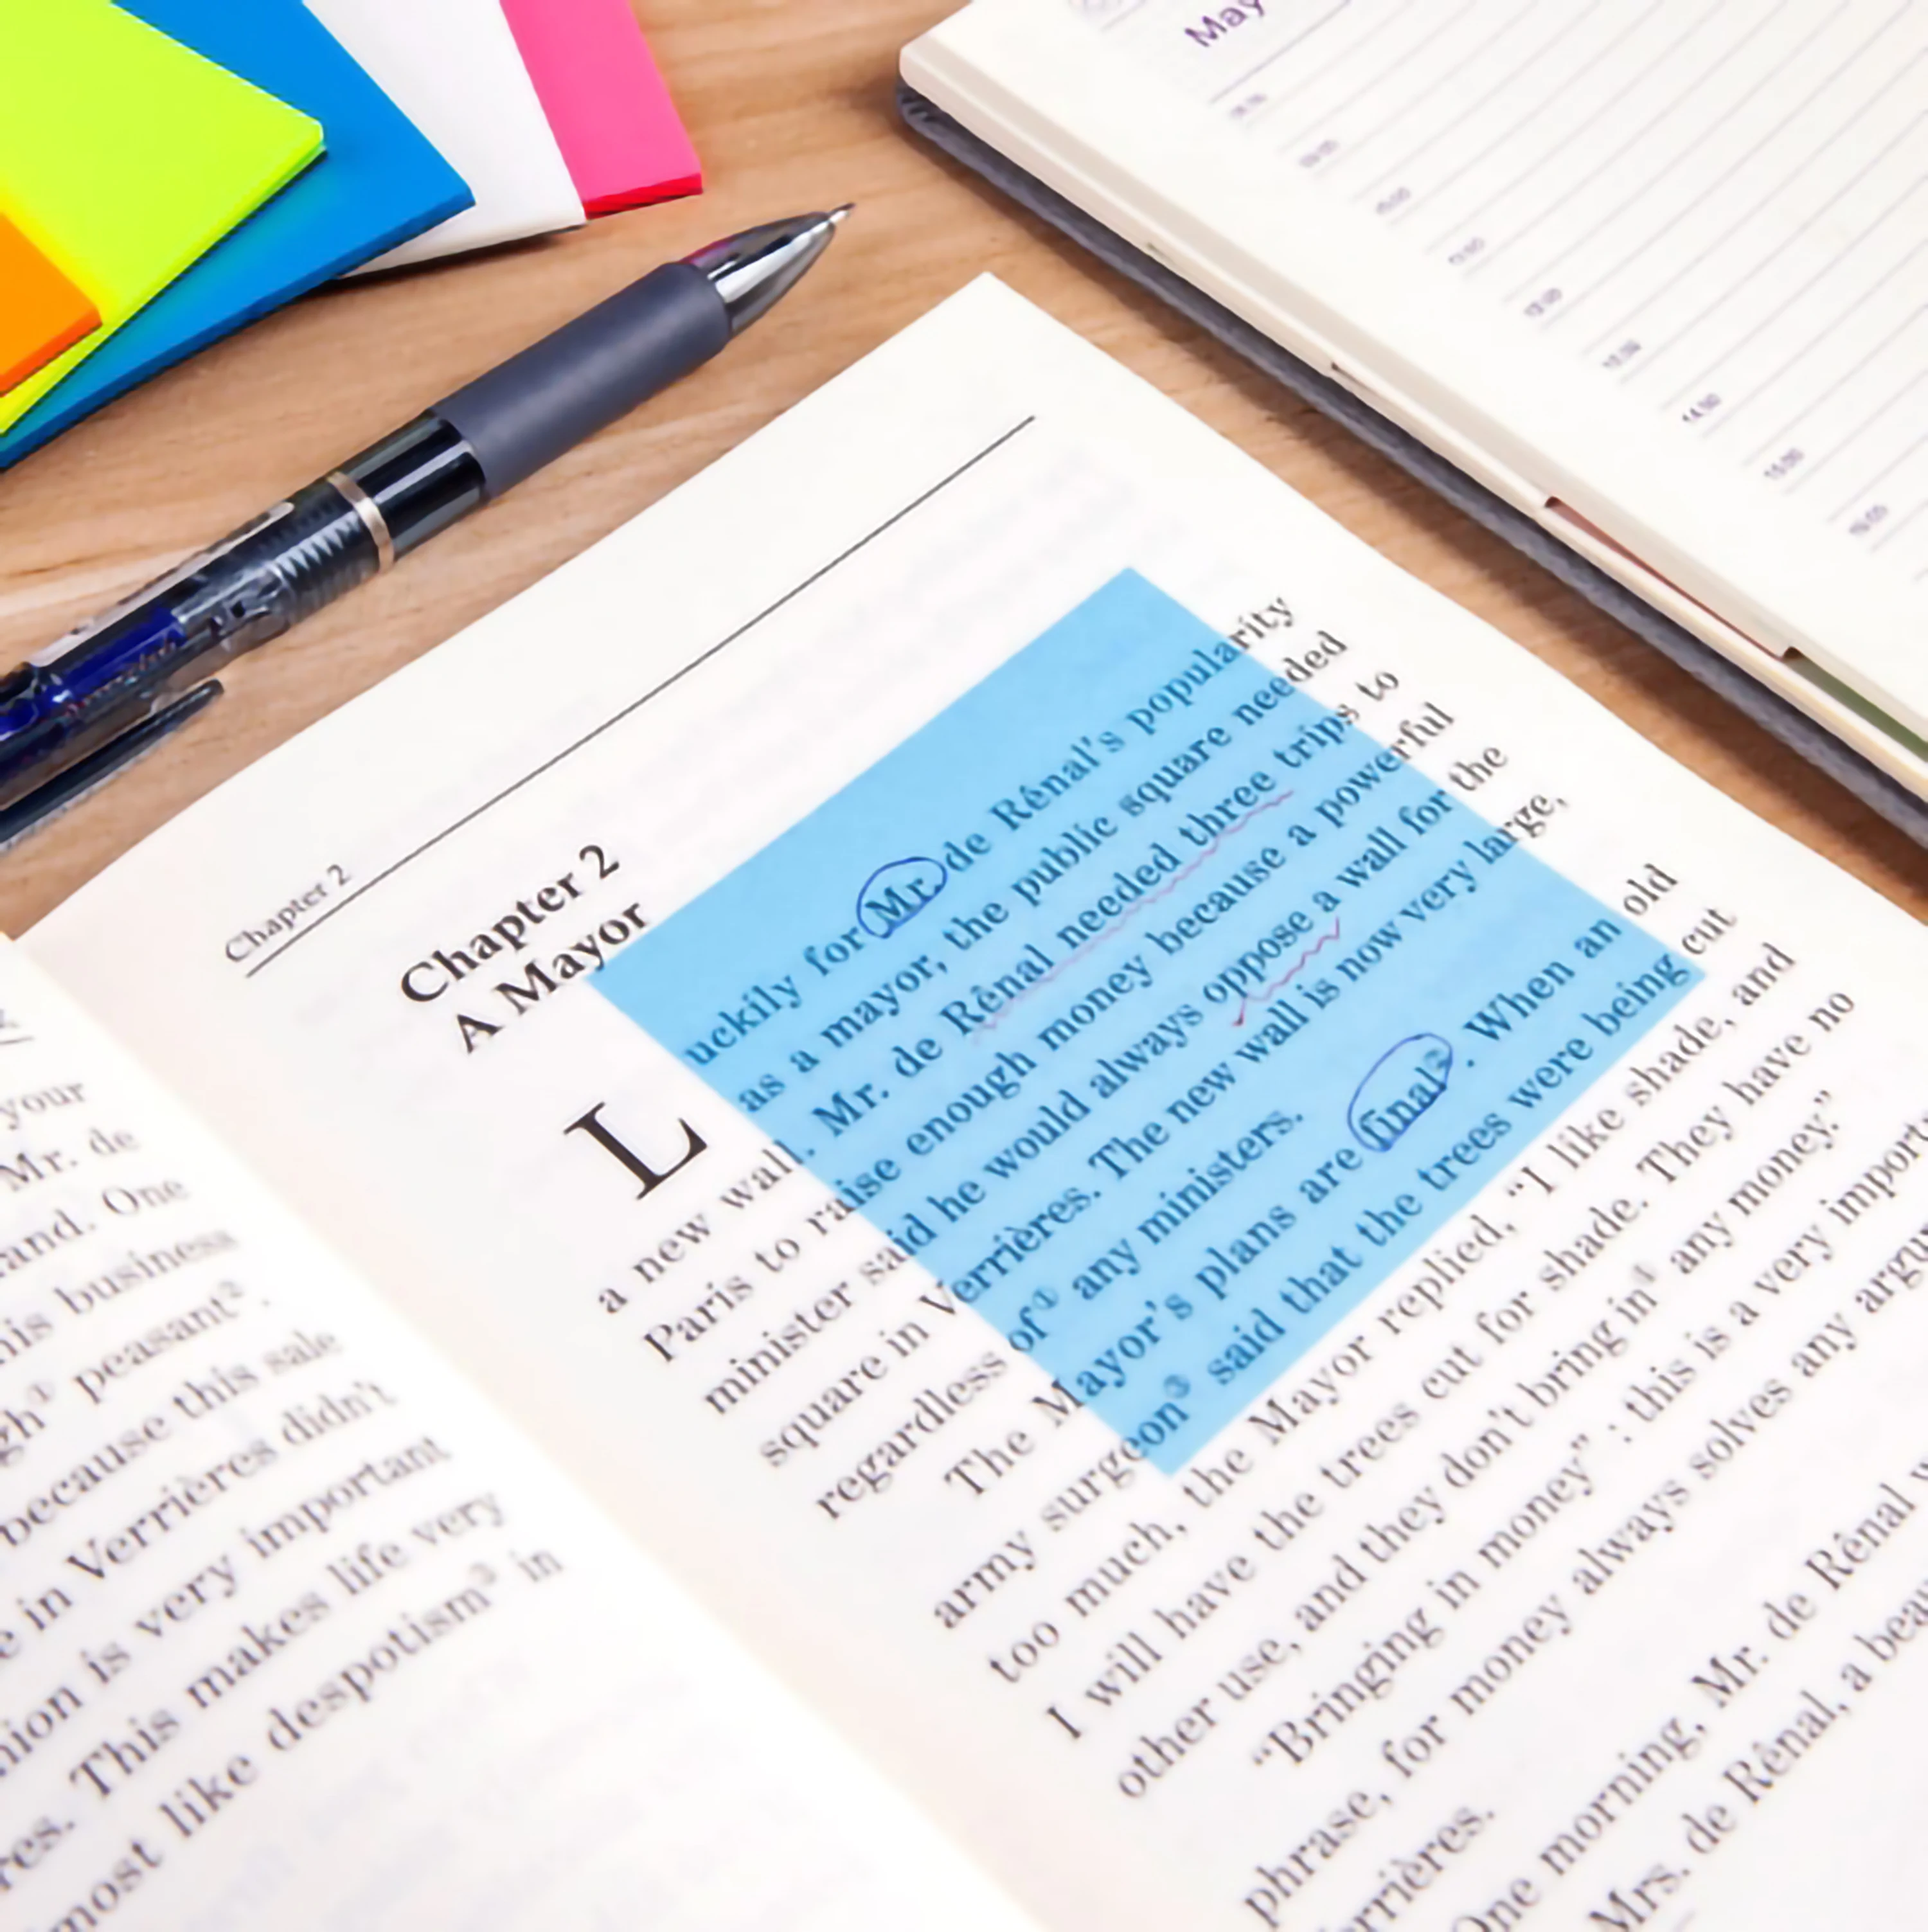 May
Chapter 2
Chapter 2
A Mayor
Luckily for Mr. de Rénal's popularity
as a mayor, the public square needed
a new wall. Mr. de Rênal needed three trips to
Paris to raise enough money because a powerful
minister said he would always oppose a wall for the
square in Verrières. The new wall is now very large,
regardless of① any ministers.
The Mayor's plans are final②. When an old
army surgeon③ said that the trees were being cut
too much, the Mayor replied, “I like shade, and
I will have the trees cut for shade. They have no
other use, and they don't bring in④ any money.”
“Bringing in money” ; this is a very import
phrase, for money always solves any argu
errières.
One morning, Mr. de Rênal w
Mrs. de Rênal, a beau
your
Mr. de
and. One
his business
gh① peasant②.
because this sale
e in Verrières didn't
nion is very important
res. This makes life very
most like despotism③ in